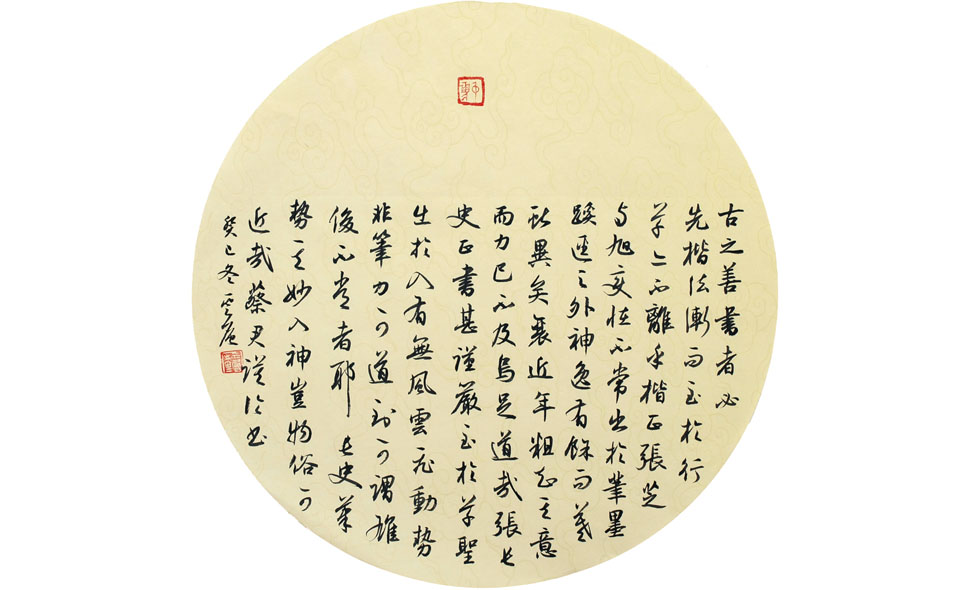 古之善書者必
先楷法漸而至於行
草亦不離乎楷正張芝
与旭變怪不常出於筆墨
蹊逕之外神逸有餘而羲
献異矣襄近年粗知其意
而力已不及烏足道哉張長
史正書甚謹嚴至於草聖
生於入有無風雲飛動勢
非筆力可道到可謂雄
俊不常者耶長史筆
勢其妙入神豈物俗可
近哉蔡君謨論書
癸巳冬